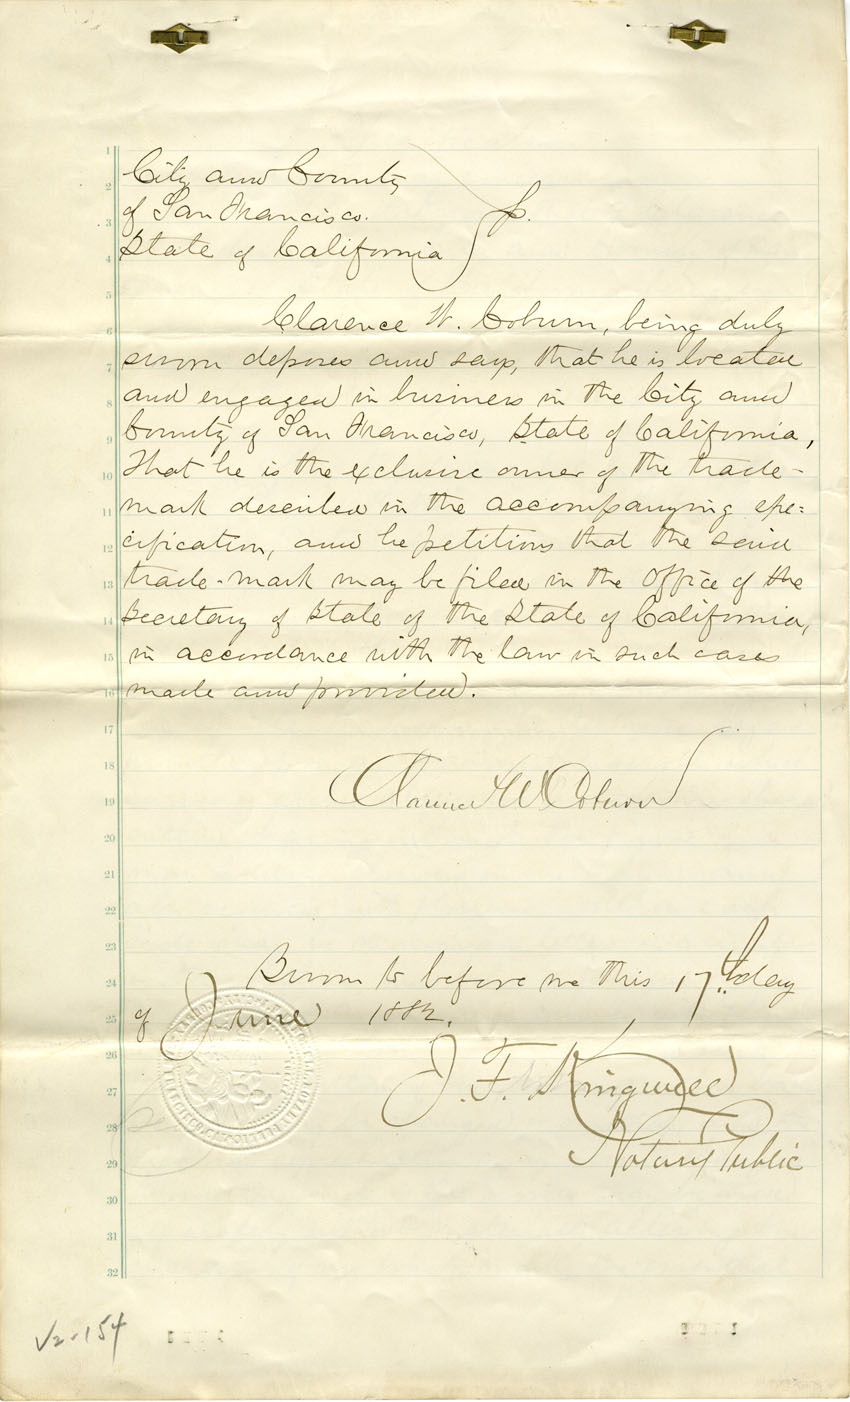 City and County
of San Francisco.
State of California
ss.
Clarence W. Coburn, being duly
sworn deposes and says, that he is located
and engaged in business in the City and
County of San Francisco, State of California,
That he is the exclusive owner of the trade-
mark described in the accompanying spe=
cification, and he petitions that the said
trade-mark may be filed in the Office of the
Secretary of State of the State of California,
in accordance with the law in such cases
made and provided.
Clarence W Coburn
Sworn to before me this 17th day
of June 1882.
J. F. Kingwell
Notary Public
V2-154
1
2
3
4
5
6
7
8
9
10
11
12
13
14
15
16
17
18
19
20
21
22
23
24
25
26
27
28
29
30
31
32